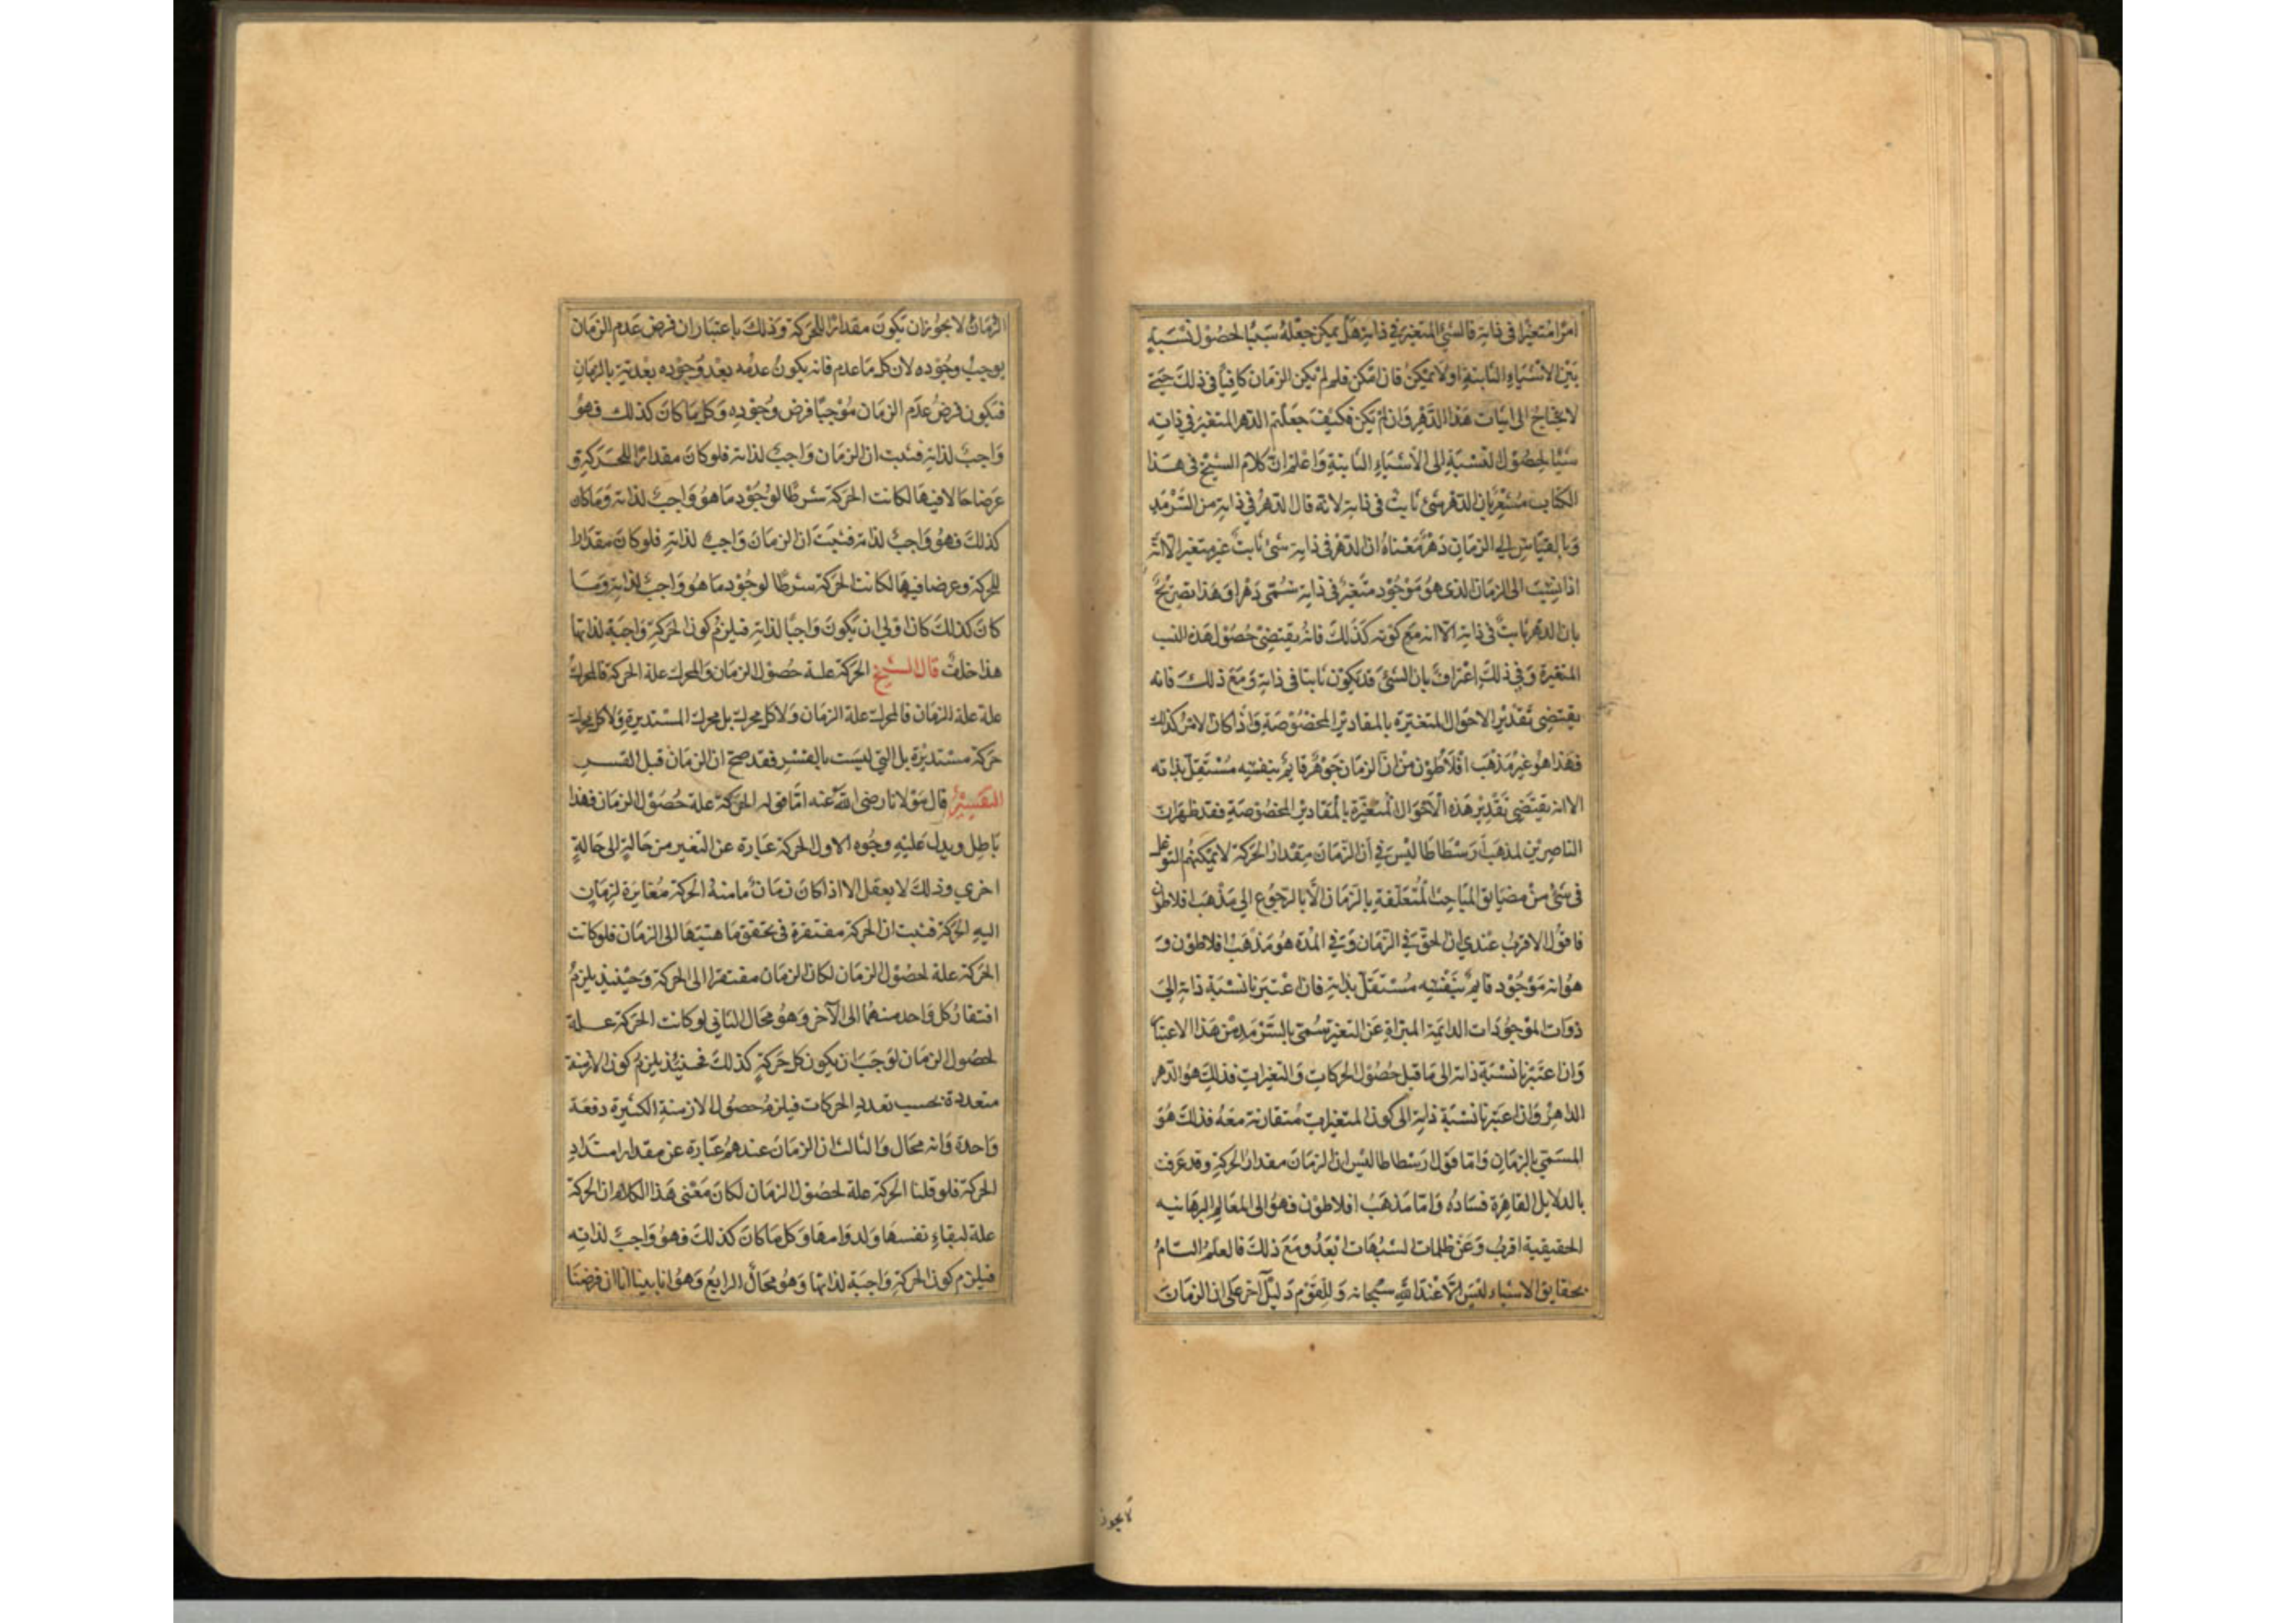 امرا متغيرا فى ذاته فالشئ المتغير فى ذاته هل يمكن جعله سببا لحصول نسبة
بين الاشياء الثابتة او لا يمكن فان امكن فلم لم يكن الزمان كافيا فى ذلك حتى
لا يحتاج الى اثبات هذا الدهر وان لم يكن فكيف جعلتم الدهر المتغير فى ذاته
سببا لحصول النسبة الى الاشياء الثابتة واعلم ان كلام الشيخ فى هذا
الكتاب مشعر بان الدهر شئ ثابت فى ذاته لانه قال الدهر فى ذاته من السرمد
وبالقياس الى الزمان دهر معناه ان الدهر فى ذاته شئ ثابت غير متغير الا انه
اذا نسب الى الزمان الذى هو موجود متغير فى ذاته سمى دهرا وهذا تصريح
بان الدهر ثابت فى ذاته الا انه مع كونه كذلك فانه يقتضى حصول هذه النسب
المتغيرة وفى ذلك اعتراف بان الشئ قد يكون ثابتا فى ذاته ومع ذلك فانه
يقتضى تقدير الاحوال المتغيرة بالمقادير المخصوصة واذا كان الامر كذلك
فهذا هو غير مذهب افلاطون من ان الزمان جوهر قايم بنفسه مستقل بذاته
الا انه يقتضى تقدير هذه الاحوال المتغيرة بالمقادير المخصوصة فقد ظهر ان
الناصرين لمذهب ارسطاطاليس فى ان الزمان مقدار الحركة لا يمكنهم التوغل
فى شئ من مضايق المباحث المتعلقة بالزمان الا بالرجوع الى مذهب افلاطون
فاقول الاقرب عندى ان الحق فى الزمان وفى المدة هو مذهب افلاطون و
هو انه موجود قايم بنفسه مستقل بذاته فان اعتبرنا نسبة ذاته الى
ذوات الموجودات الدائمة المبراة عن التغير سمى بالسرمد من هذا الاعتبار
وان اعتبرنا نسبة ذاته الى ما قبل حصول الحركات والتغيرات فذلك هو الدهر
الداهر وان اعتبرنا نسبة ذاته الى كون المتغيرات متقارنة معه فذلك هو
المسمى بالزمان واما قول ارسطاطاليس ان الزمان مقدار الحركة وقد عرفت
بالدلايل القاهرة فساده واما مذهب افلاطون فهو الى المعالم البرهانيه
الحقيقية اقرب وعن ظلمات الشبهات ابعد ومع ذلك فالعلم التام
بحقايق الاشياء ليس الا عند الله سبحانه وللقوم دليل آخر على ان الزمان
لا يجوز
الزمان لا يجوز ان يكون مقدارا للحركة وذلك باعتبار ان فرض عدم الزمان
يوجب وجوده لان كل ما عدم فانه يكون عدمه بعد وجوده بعدية بالزمان
فيكون فرض عدم الزمان موجبا فرض وجوده وكل ما كان كذلك فهو
واجب لذاته فثبت ان الزمان واجب لذاته فلو كان مقدارا للحركة و
عرضا حالا فيها لكانت الحركة شرطا لوجود ما هو واجب لذاته وما كان
كذلك فهو واجب لذاته فثبت ان الزمان واجب لذاته فلو كان مقدارا
للحركة وعرضا فيها لكانت الحركة شرطا لوجود ما هو واجب لذاته وما
كان كذلك كان اولى ان يكون واجبا لذاته فيلزم كون الحركة واجبة لذاتها
هذا خلف قال الشيخ الحركة علة حصول الزمان والمحرك علة الحركة فالمحرك
علة علة الزمان فالمحرك علة الزمان ولا كل محرك بل محرك المستديرة ولا كل محرك
حركة مستديرة بل التى ليست بالقسر فقد صح ان الزمان قبل القسر
التفسير قال مولانا رضى الله عنه اما قوله الحركة علة حصول الزمان فهذا
باطل ويدل عليه وجوه الاول الحركة عبارة عن التغير من حالة الى حالة
اخرى وذلك لا يعقل الا اذا كان زمان ما منه الحركة مغايرة لزمان
اليه الحركة فثبت ان الحركة مفتقرة فى تحقق ماهيتها الى الزمان فلو كانت
الحركة علة لحصول الزمان لكان الزمان مفتقرا الى الحركة وحينئذ يلزم
افتقار كل واحد منهما الى الآخر وهو محال الثانى لو كانت الحركة علة
لحصول الزمان لوجب ان يكون كل حركة كذلك فحينئذ يلزم كون الازمنة
متعددة بحسب تعدد الحركات فيلزم حصول الازمنة الكثيرة دفعة
واحدة وانه محال والثالث ان الزمان عندهم عبارة عن مقدار امتداد
الحركة فلو قلنا الحركة علة لحصول الزمان لكان معنى هذا الكلام ان الحركة
علة لبقاء نفسها ولدوامها وكل ما كان كذلك فهو واجب لذاته
فيلزم كون الحركة واجبة لذاتها وهو محال الرابع وهو انا بينا انا ان فرضنا